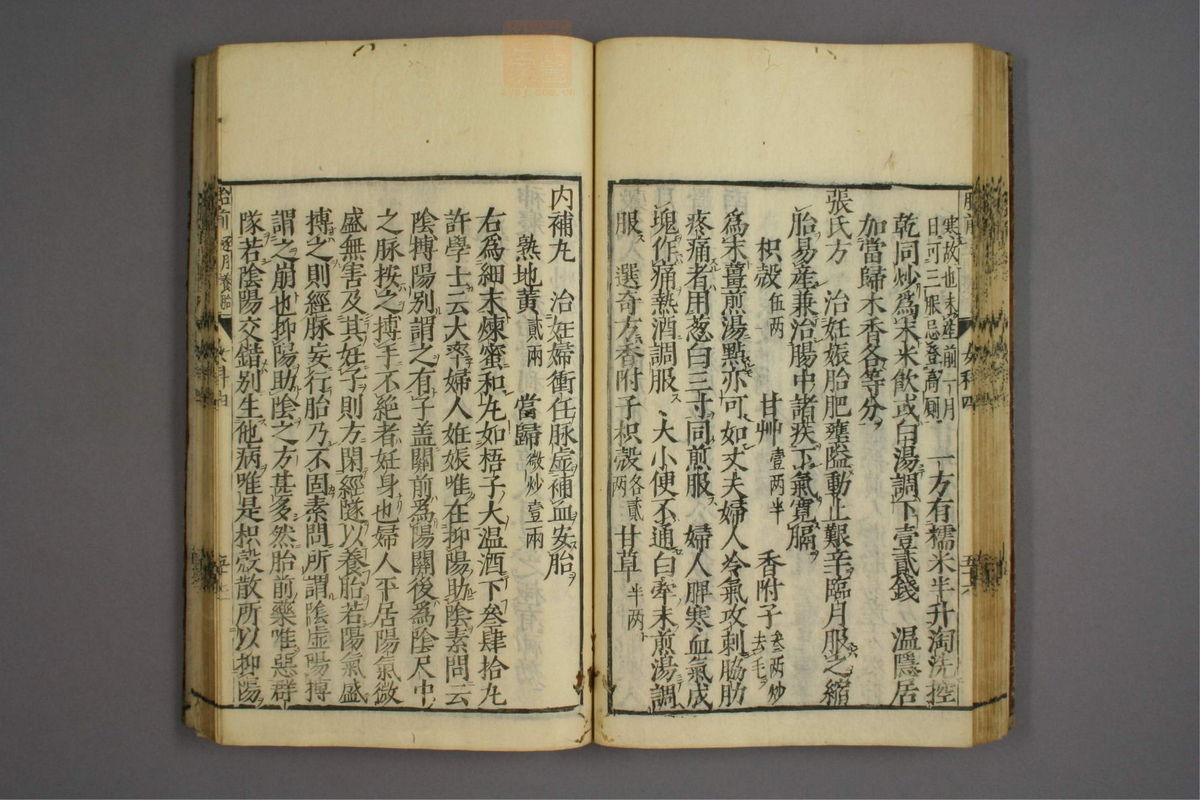 寒故也未産前一月
日可三服忌登高厠
一方有糯米半升淘洗控
乾同炒爲末米飮或白湯調下壹貳錢 温隱居
加當歸木香各等分
張氏方 治妊娠胎肥壅隘動止艱辛臨月服之縮
胎易産兼治腸中諸疾下氣寛膈
枳殼伍两 甘艸壹两半 香附子叁两炒去毛
爲末薑煎湯點亦可如丈夫婦人冷氣攻刺脇肋
疼痛者用葱白三寸同煎服 婦人脾寒血氣成
塊作痛熱酒調服 大小便不通白牽末煎湯調
服 選奇方香附子枳殼各貳两甘草半两
内補丸 治妊婦衝任脉虚補血安胎
熟地黄貳兩 當歸微炒壹兩
右爲細末煉蜜和丸如梧子大温酒下叁肆拾丸
許學士云大率婦人妊娠唯在抑陽助陰素問云
陰搏陽别謂之有子盖關前爲陽關後爲陰尺中
之脉按之搏手不絶者妊身也婦人平居陽氣微
盛無害及其妊子則方閑經隧以養胎若陽氣盛
搏之則經脉妄行胎乃不固素問所謂陰虚陽搏
謂之崩也抑陽助陰之方甚多然胎前藥唯惡群
隊若陰陽交錯别生他病唯是枳殼散所以抑陽
胎前 逐月養胎
女科四